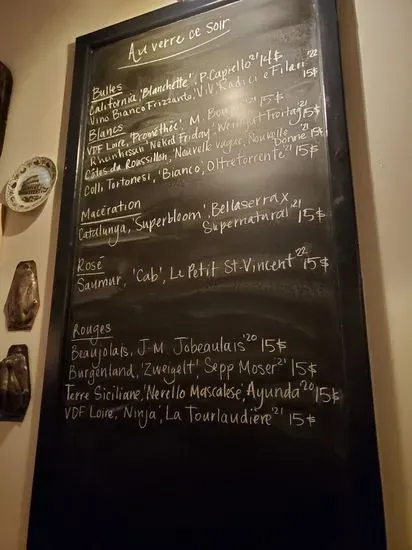 Au verre ce soir
Bulles
California, 'Blanchette', P. Capiello '21 14$
Vino Bianco Frizzante, V.V. Radici e Filari '22 15$
Blancs
VDF Loire, 'Prométhée', M. '21 15$
Rheinhessen 'Naked Friday', Weingut Freitag 15$
Côtes du Roussillon, Nouvelle vague, Nouvelle Donne 15$
Colli Tortonesi, 'Bianco', Oltretorrente '21 15$
Macération
Catalunya, 'Superbloom', Bellaserra x Supernatural '21 15$
Rosé
Saumur, 'Cab', Le Petit St-Vincent '22 15$
Rouges
Beaujolais, J-M. Jobeaulais '20 15$
Burgenland, 'Zweigelt' Sepp Moser '21 15$
Terre Siciliane, 'Nerello Mascalese', Ayunda '20 15$
VDF Loire, 'Ninja', La Tourlaudière '21 15$